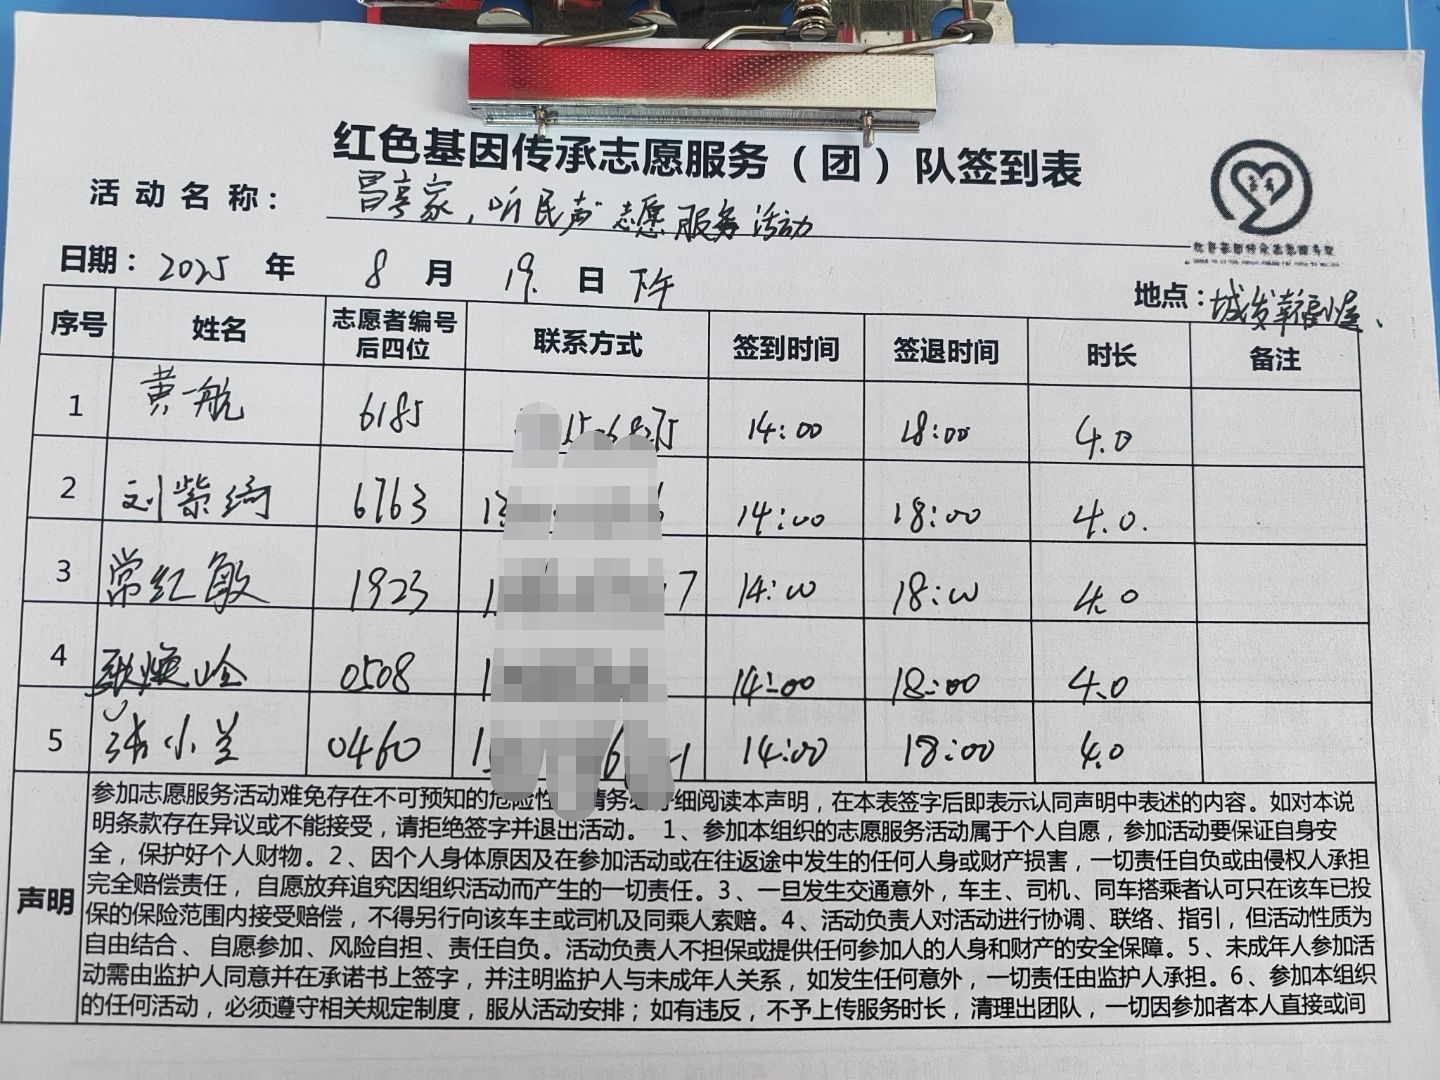 红色基因传承志愿服务（团）队签到表
活动名称： 昌亭家，听民声志愿服务活动
日期：2025年 8月 19.日 下午
地点：城发幸福小屋、
序号 姓名 志愿者编号后四位 联系方式 签到时间 签退时间 时长 备注
1 黄一航 6185 14:00 18:00 4.0
2 刘紫绮 6763 14:00 18:00 4.0.
3 常红敏 1923 14:00 18:00 4.0
4 耿焕岭 0508 14:00 18:00 4.0
5 张小兰 0460 14:00 18:00 4.0
声明
参加志愿服务活动难免存在不可预知的危险性 请务 仔细阅读本声明，在本表签字后即表示认同声明中表述的内容。如对本说
明条款存在异议或不能接受，请拒绝签字并退出活动。 1、参加本组织的志愿服务活动属于个人自愿，参加活动要保证自身安
全，保护好个人财物。2、因个人身体原因及在参加活动或在往返途中发生的任何人身或财产损害，一切责任自负或由侵权人承担
完全赔偿责任，自愿放弃追究因组织活动而产生的一切责任。3、一旦发生交通意外，车主、司机、同车搭乘者认可只在该车已投
保的保险范围内接受赔偿，不得另行向该车主或司机及同乘人索赔。4、活动负责人对活动进行协调、联络、指引，但活动性质为
自由结合、自愿参加、风险自担、责任自负。活动负责人不担保或提供任何参加人的人身和财产的安全保障。5、未成年人参加活
动需由监护人同意并在承诺书上签字，并注明监护人与未成年人关系，如发生任何意外，一切责任由监护人承担。6、参加本组织
的任何活动，必须遵守相关规定制度，服从活动安排；如有违反，不予上传服务时长，清理出团队，一切因参加者本人直接或间